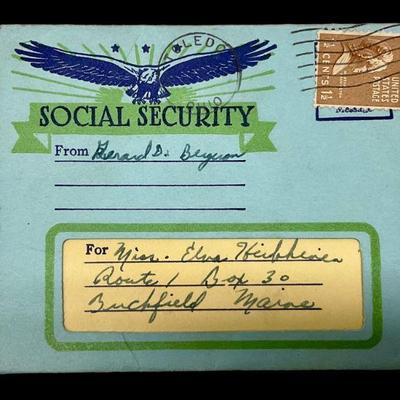 TOLEDO
OHIO
UNITED STATES POSTAGE
1½ CENTS 1½
SOCIAL SECURITY
From Gerard D.
For Miss. Elva
Route 1 Box 30
Buckfield Maine